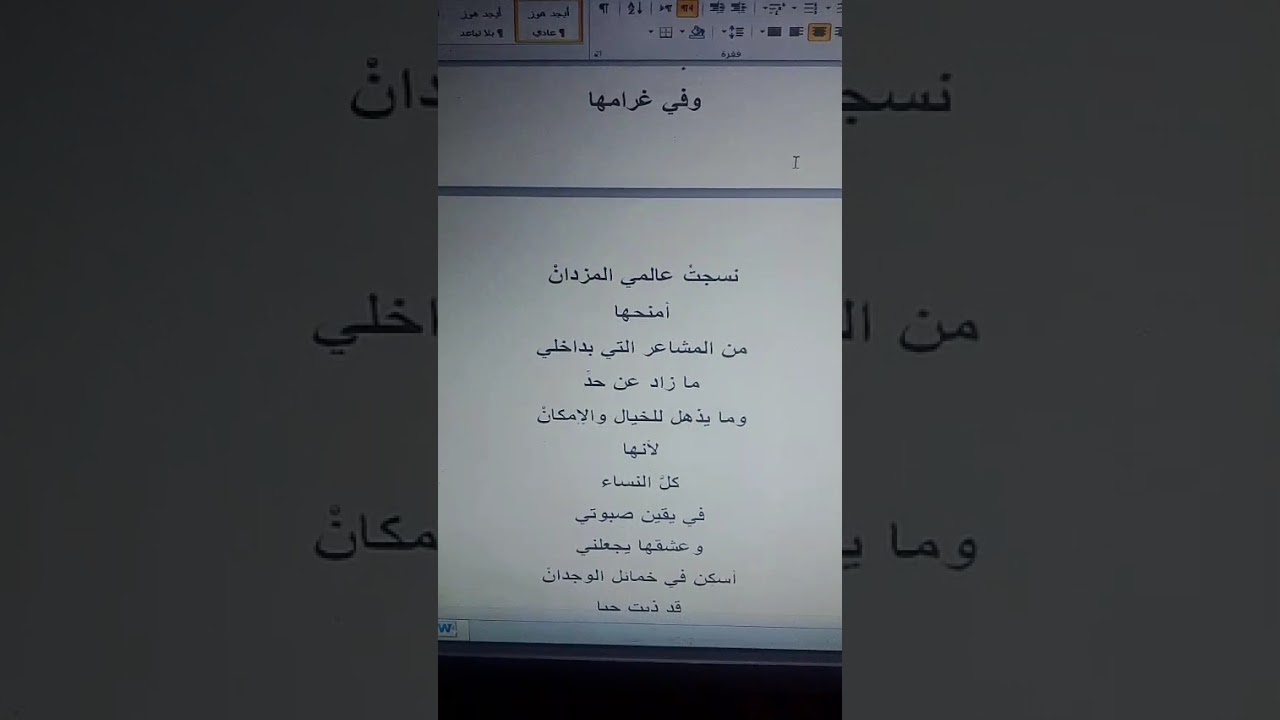 أبجد هوز
أبجد هوز
¶ عادي
¶ بلا تباعد
فقرة
وفي غرامها
نسجتْ عالمي المزدانْ
أمنحها
من المشاعر التي بداخلي
ما زاد عن حدّ
وما يذهل للخيال والإمكانْ
لأنها
كلّ النساء
في يقين صبوتي
وعشقها يجعلني
أسكن في خمائل الوجدانْ
قد ذبت حبا